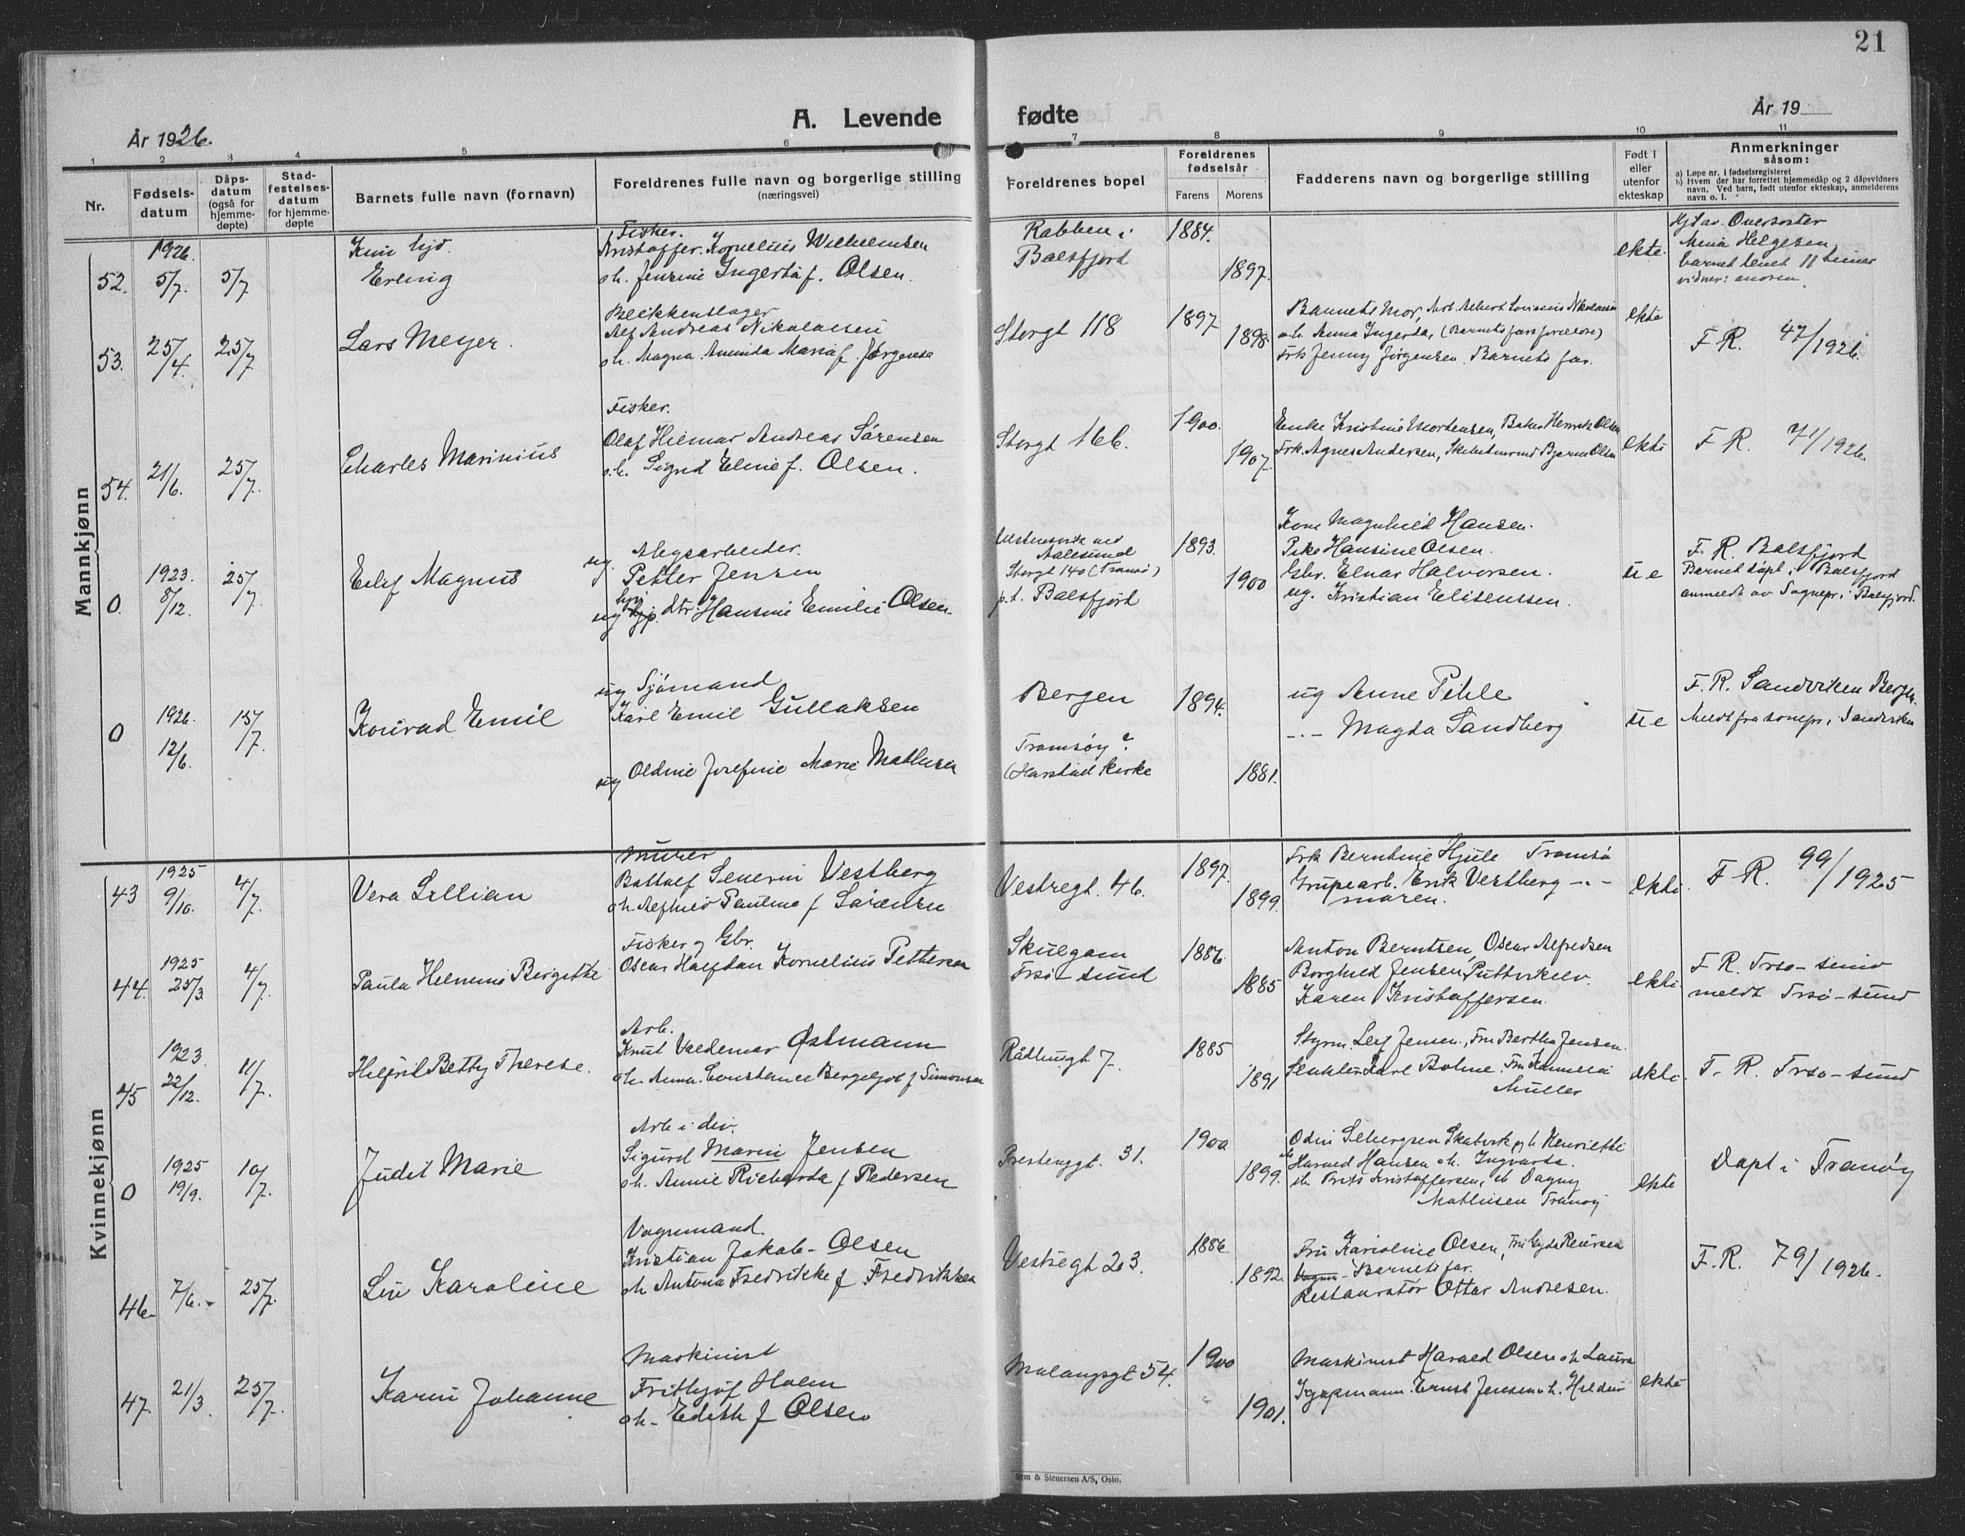 21
A. Levende fødte
År 1926.
År 19
1 2 3 4 5 6 7 8 9 10 11
Nr.
Fødsels-
datum
Dåps-
datum
(også for
hjemme-
døpte)
Stad-
festelses-
datum
for hjemme-
døpte
Barnets fulle navn (fornavn)
Foreldrenes fulle navn og borgerlige stilling
(næringsvei)
Foreldrenes bopel
Foreldrenes
fødselsår
Farens Morens
Fadderens navn og borgerlige stilling
Født i
eller
utenfor
ekteskap
Anmerkninger
såsom:
a) Løpe nr. i fødselsregisteret
b) Hvem der har forrettet hjemmedåp og 2 dåpsvidners
navn. Ved barn, født utenfor ekteskap, anmelderens
navn o. l.
Mannkjønn
52. 1926. 5/7. 5/7
Erling
Fisker.
Kristoffer Kornelius Wilhelmsen
o.h. Jensine Ingerta f. Olsen.
Rabben i
Balsfjord
1884. 1897.
ekte
Oversøster
Helgesen,
53. 25/4 25/7
Lars Meyer.
Blikkenslager
Alf Andreas Nikolaisen
o.h. Magna Amanda Maria f. Jørgensen
Storgt 118
1897 1898.
Barnets Mor,
o.h. Anna Ingerda, (Barnets fars foreldre)
Frk Jenny Jørgensen. Barnets far.
ekte
F R. 47/1926.
54. 21/6. 25/7.
Charles Marinius
Fisker.
Olaf Hilmar Andreas Sørensen
o.h. Sigrid Eline f. Olsen.
Storgt 166.
1900. 1907.
Enke Kristine Mortensen, Baker Henrik Olsen
Frk. Agnes Andersen, Bjarne Olsen
ekte
F R. 71/1926.
0 1923. 8/12. 25/7.
Eilif Magnus
ug. Alegsarbeider.
Petter Jensen
Hansine Emilie Olsen.
Aalesund
Storgt 140 (Tromsø)
p.t. Balsfjord
1893. 1900
Kone Magnhild Hansen.
Pike Hansine Olsen.
Gbr. Einar Halvorsen.
ug. Kristian Elisenssen.
u e
F. R. Balsfjord
Barnet døpt i Balsfjord
anmeldt av Sognepr. i Balsfjord.
0 1926. 12/6. 15/7.
Konrad Emil
ug Sjømand
Karl Emil Gullaksen
ug Oldine Josefine Marie Mathisen
Bergen
Tromsøy?
(Harstad kirke
1894. 1881.
ug Anne Pihle
-.- Magda Sandberg
u e
F. R. Sandviken Bergen.
Meldt fra sognepr. i Sandviken
Kvinnekjønn
43 1925 9/10. 4/7.
Vera Lillian
Murer
Ballolf Severin Vestberg
Pauline f Sørensen
Vestregt. 46.
1897. 1899.
Frk Berntine Hjule Tromsø
Grupearb. Erik Vestberg -.-
moren.
ekte.
F R. 99/1925
44. 1925 25/3. 4/7
Paula Helmine Birgitte
Fisker og Gbr.
Oscar Halfdan Kornelius Pettersen
Skulgam
Trsø-sund
1886. 1885
Anton Berntsen, Oscar Alfredsen
Borghild Jensen,
Karen Kristoffersen.
ekte
F R. Trsø-sund
meldt Trsø-sund
45 1923 22/12. 11/7.
Helfrid Betty Therese.
Arb.
Knut Valdemar Østmann
o.h. Anna Constance Bergeljot f Simonsen
Rådhusgt 7.
1885 1891
Styrm. Leif Jensen, Fru Bertha Jensen.
Karl Bohne, Fru Kamilla
Müller
ekte.
F. R. Trsø-sund
0 1925 19/9. 10/7.
Judit Marie
Arb i div.
Sigurd Marin Jensen
o.h. Annie Richarda f Pedersen
Prestenggt. 31.
1900 1899.
Odin Seburgsen Skatvik og h Henriette
Harald Hansen o.h. Ingvarda.
Frits Kristoffersen, o.h Dagny
Mathisen Tranøy
ekte
Døpt i Tranøy
46. 7/6.- 25/7.
Liv Karoline
Vognmand.
Kristian Jakob Olsen
o.h Antona Fredrikke f Fredriksen
Vestregt 23.
1886 1892.
Fru Karoline Olsen,
Barnets far.
Restauratør Ottar Andresen.
F. R. 79/1926.
47. 21/3. 25/7.
Karin Johanne
Maskinist
Frithjof Holm
o.h. Edith f Olsen
Malangsgt 54.
1900 1901.
Maskinist Harald Olsen o.h Laura
Typogmann. Ernst Jensen o.h. Hildur
ekte
Sem & Stenersen A/S, Oslo.